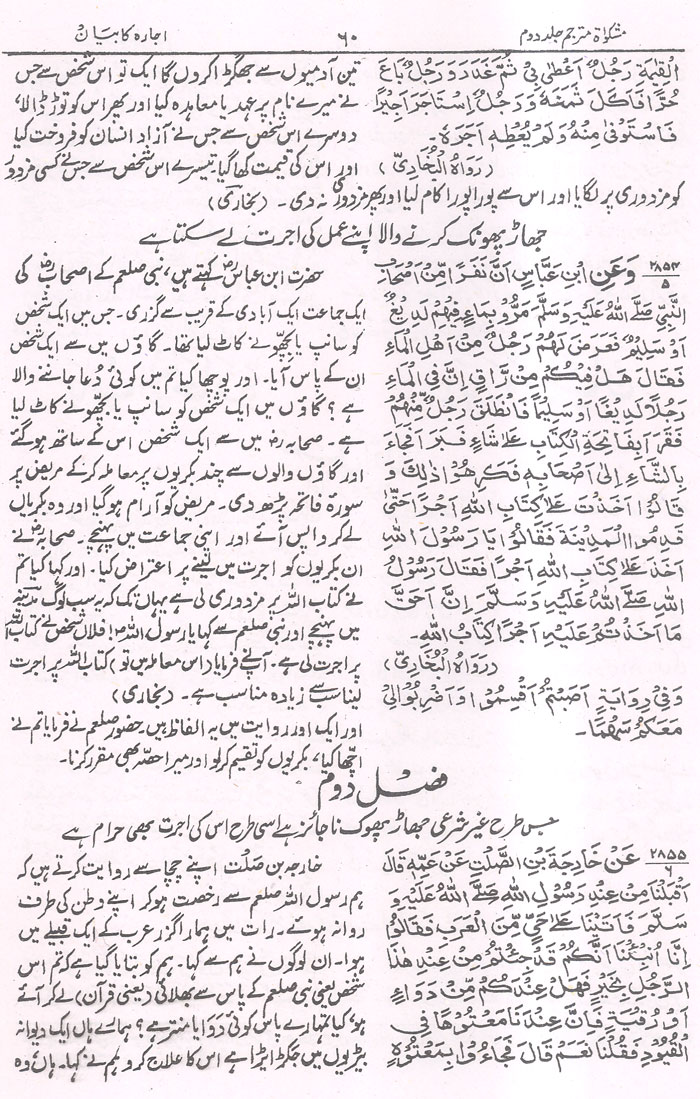 مشکوٰۃ مترجم جلد دوم
۶۰
اجارہ کا بیان
الْقِيٰمَةِ رَجُلٌ اَعْطٰى بِىْ ثُمَّ غَدَرَ وَرَجُلٌ بَاعَ
حُرًّا فَاَكَلَ ثَمَنَهٗ وَرَجُلٌ اِسْتَاْجَرَ اَجِيْرًا
فَاسْتَوْفٰى مِنْهُ وَلَمْ يُعْطِهٖ اَجْرَهٗ۔
(رَوَاهُ الْبُخَارِىُّ)
تین آدمیوں سے جھگڑا کروں گا ایک تو اس شخص سے جس
نے میرے نام پر عہد یا معاہدہ کیا اور پھر اس کو توڑ ڈالا،
دوسرے اس شخص سے جس نے آزاد انسان کو فروخت کیا
اور اس کی قیمت کھا گیا، تیسرے اس شخص سے جس نے کسی مزدور
کو مزدوری پر لگایا اور اس سے پورا پورا کام لیا اور پھر مزدوری نہ دی۔ (بخاری)
جھاڑ پھونک کرنے والا اپنے عمل کی اجرت لے سکتا ہے
۲۸۵۴
۵
وَعَنِ ابْنِ عَبَّاسٍ اَنَّ نَفَرًا مِّنْ اَصْحَابِ
النَّبِىِّ صَلَّى اللّٰهُ عَلَيْهِ وَسَلَّمَ مَرُّوْا بِمَاءٍ فِيْهِمْ لَدِيْغٌ
اَوْ سَلِيْمٌ فَعَرَضَ لَهُمْ رَجُلٌ مِّنْ اَهْلِ الْمَاءِ
فَقَالَ هَلْ فِيْكُمْ مِنْ رَّاقٍ اِنَّ فِى الْمَاءِ
رَجُلًا لَدِيْغًا اَوْ سَلِيْمًا فَانْطَلَقَ رَجُلٌ مِّنْهُمْ
فَقَرَأَ بِفَاتِحَةِ الْكِتَابِ عَلٰى شَاءٍ فَبَرَأَ فَجَاءَ
بِالشَّاءِ اِلٰى اَصْحَابِهٖ فَكَرِهُوْا ذٰلِكَ وَ
قَالُوْا اَخَذْتَ عَلٰى كِتَابِ اللّٰهِ اَجْرًا حَتّٰى
قَدِمُوا الْمَدِيْنَةَ فَقَالُوْا يَا رَسُوْلَ اللّٰهِ
اَخَذَ عَلٰى كِتَابِ اللّٰهِ اَجْرًا فَقَالَ رَسُوْلُ
اللّٰهِ صَلَّى اللّٰهُ عَلَيْهِ وَسَلَّمَ اِنَّ اَحَقَّ
مَا اَخَذْتُمْ عَلَيْهِ اَجْرًا كِتَابُ اللّٰهِ۔
(رَوَاهُ الْبُخَارِىُّ)
وَفِىْ رِوَايَةٍ اَصَبْتُمْ اَقْسِمُوْا وَاضْرِبُوْا لِىْ
مَعَكُمْ سَهْمًا۔
حضرت ابن عباسؓ کہتے ہیں، نبی صلعم کے اصحابؓ کی
ایک جماعت ایک آبادی کے قریب سے گزری۔ جس میں ایک شخص
کو سانپ یا بچھو نے کاٹ لیا تھا۔ گاؤں میں سے ایک شخص
ان کے پاس آیا۔ اور پوچھا کیا تم میں کوئی دُعا جاننے والا
ہے؟ گاؤں میں ایک شخص کو سانپ یا بچھو نے کاٹ لیا
ہے۔ صحابہؓ میں سے ایک شخص اس کے ساتھ ہو گئے
اور گاؤں والوں سے چند بکریوں پر معاملہ کر کے مریض پر
سورۂ فاتحہ پڑھ دی۔ مریض کو آرام ہو گیا اور وہ بکریاں
لے کر واپس آئے اور اپنی جماعت میں پہنچے۔ صحابہؓ نے
ان بکریوں کو اجرت میں لینے پر اعتراض کیا۔ اور کہا کیا تم
نے کتاب اللہ پر مزدوری لی ہے یہاں تک کہ یہ سب لوگ مدینہ
میں پہنچے اور نبی صلعم سے کہا یا رسول اللہ! فلاں شخص نے کتاب اللہ
پر اجرت لی ہے۔ آپنے فرمایا (اس معاملہ میں تو) کتاب اللہ پر اجرت
لینا سب سے زیادہ مناسب ہے۔ (بخاری)
اور ایک اور روایت میں یہ الفاظ ہیں۔ حضور صلعم نے فرمایا تم نے
اچھا کیا، بکریوں کو تقسیم کر لو اور میرا حصّہ بھی مقرر کرنا۔
فصل دوم
جس طرح غیر شرعی جھاڑ پھونک ناجائز ہے اسی طرح اس کی اجرت بھی حرام ہے
۲۸۵۵
۶
عَنْ خَارِجَةَ بْنِ الصَّلْتِ عَنْ عَمِّهٖ قَالَ
اَقْبَلْنَا مِنْ عِنْدِ رَسُوْلِ اللّٰهِ صَلَّى اللّٰهُ عَلَيْهِ وَ
سَلَّمَ فَاَتَيْنَا عَلٰى حَىٍّ مِّنَ الْعَرَبِ فَقَالُوْا
اِنَّا اُنْبِئْنَا اَنَّكُمْ قَدْ جِئْتُمْ مِنْ عِنْدِ هٰذَا
الرَّجُلِ بِخَيْرٍ فَهَلْ عِنْدَكُمْ مِّنْ دَوَاءٍ
اَوْ رُقْيَةٍ فَاِنَّ عِنْدَنَا مَعْتُوْهًا فِى
الْقُيُوْدِ فَقُلْنَا نَعَمْ قَالَ فَجَاءُوْا بِمَعْتُوْهٍ
خارجہ بن صلت اپنے چچا سے روایت کرتے ہیں کہ
ہم رسول اللہ صلعم سے رخصت ہو کر اپنے وطن کی طرف
روانہ ہوئے۔ رات میں ہمارا گزر عرب کے ایک قبیلے میں
ہوا۔ ان لوگوں نے ہم سے کہا۔ ہم کو بتایا گیا ہے کہ تم اس
شخص یعنی نبی صلعم کے پاس سے بھلائی (یعنی قرآن) لے کر آئے
ہو، کیا تمہارے پاس کوئی دوا یا منتر ہے؟ ہمارے ہاں ایک دیوانہ
بیڑیوں میں جکڑا پڑا ہے اس کا علاج کرو ہم نے کہا۔ ہاں وہ